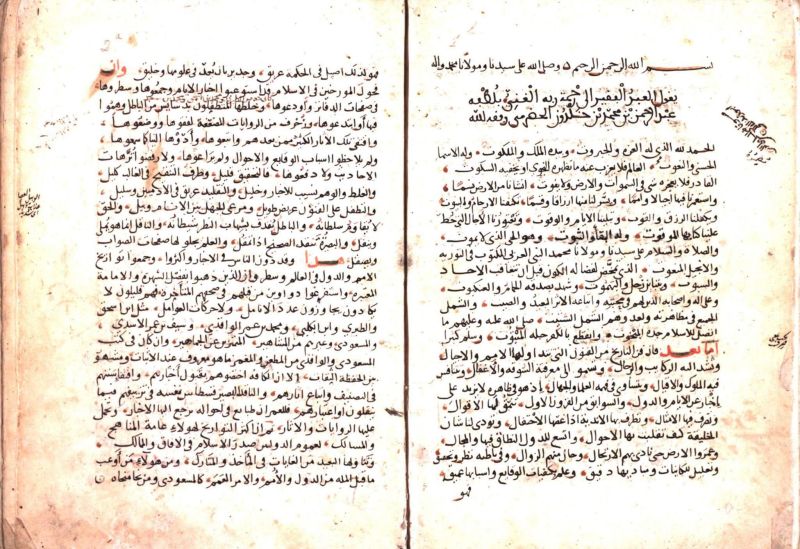 بسم الله الرحمن الرحيم وصلى الله على سيدنا ومولانا محمد وآله
يقول العبد الفقير الى رحمة ربه الغني بلطفه
عبد الرحمن بن محمد بن خلدون الحضرمي وفقه الله
الحمد لله الذي له العزة والجبروت وبيده الملك والملكوت وله الاسماء
الحسنى والنعوت العالم فلا يعزب عنه ما تظهره النجوى او يخفيه السكوت
القادر فلا يعجزه شي في السموات والارض ولا يفوت انشانا من الارض نسما
واستعمرنا فيها اجيالا وامما ويسر لنا منها ارزاقا وقسما تكنفنا الارحام والبيوت
ويكفلنا الرزق والقوت وتبلينا الايام والوقوت وتعتورنا الاجال التي خط
علينا كتابها الموقوت وله البقا والثبوت وهو الحي الذي لا يموت
والصلاة والسلام على سيدنا ومولانا محمد النبي العربي المكتوب في التورية
والانجيل المنعوت الذي تمحض لفصاله الكون قبل ان تتعاقب الاحاد
والسبوت وتباين زحل واليهموت وشهد بصدقه الحمام والعنكبوت
وعلى اله واصحابه الذين لهم في محبته واتباعه الاثر البعيد والصيت والشمل
الجميع في مظاهرته ولعدوهم الشمل الشتيت صلى الله عليه وعليهم ما
اتصل للاسلام جده المبخوت وانقطع بالكفر حبله المبتوت وسلم كثيرا
اما بعد فان فن التاريخ من الفنون التي تتداولها الامم والاجيال
وتشد اليه الركايب والرحال وتسمو الى معرفته السوقة والاغفال وتتنافس
فيه الملوك والاقيال ويتساوى في فهمه العلما والجهال اذ هو في ظاهره لا يزيد على
اخبار عن الايام والدول والسوابق من القرون الاول تنمى لها الاقوال
وتصرف فيها الامثال وتطرف بها الاندية اذا غصها الاحتفال وتودي لنا شان
الخليقة كيف تقلبت بها الاحوال واتسع للدول النطاق فيها والمجال
وعمروا الارض حتى نادى بهم الارتحال وحان منهم الزوال وفي باطنه نظر وتحقيق
وتعليل للكاينات ومباديها دقيق وعلم بكيفيات الوقايع واسبابها عميق
فهو
فهو لذلك اصيل في الحكمة عريق وجدير بان يعد في علومها وخليق وان
فحول المورخين في الاسلام قد استوعبوا اخبار الايام وجمعوها وسطروها
في صفحات الدفاتر واودعوها وخلطها المتطفلون بدسايس من الباطل وهموا
فيها او ابتدعوها وزخرف من الروايات المضعفة لفقوها ووضعوها
واقتفى تلك الاثار الكثير ممن بعدهم واتبعوها وادوها الينا كما سمعوها
ولم يلاحظوا اسباب الوقايع والاحوال ولم يراعوها ولا رفضوا ترهات
الاحاديث ولا دفعوها فالتحقيق قليل وطرف التنقيح في الغالب كليل
والغلط والوهم نسيب للاخبار وخليل والتقليد عريق في الادميين وسليل
والتطفل على الفنون عريض طويل ومرعى الجهل بين الانام وبيل والحق
لا يقاوم سلطانه والباطل يقذف بشهاب النظر شيطانه والناقل انما هو يملي
وينقل والبصيرة تنقد الصحيح اذا تمقل والعلم يجلو لها صفحات الصواب
ويصقل هذا وقد دون الناس الاخبار واكثروا وجمعوا تواريخ
الامم والدول في العالم وسطروا والذين ذهبوا بفضل الشهرة والامامة
المعتبرة واستفرغوا دواوين من قبلهم في صحفهم المتاخرة هم قليلون لا
يكادون يجاوزون عدد الانامل ولا حركات العوامل مثل ابن اسحق
والطبري وابن الكلبي ومحمد بن عمر الواقدي وسيف بن عمر الاسدي
والمسعودي وغيرهم من المشاهير المتميزين عن الجماهير وان كان في كتب
المسعودي والواقدي من المطعن والمغمز ما هو معروف عند الاثبات ومشهور
بين الحفظة الثقات الا ان الكافة اختصوهم بقبول اخبارهم واقتفا سننهم
في التصنيف واتباع اثارهم والناقد البصير قسطاس نفسه في تزييفهم فيما
ينقلون او اعتبارهم فللعمران طبايع في احواله ترجع اليها الاخبار وتحمل
عليها الروايات والاثار ثم ان اكثر التواريخ لهولاء عامة المناهج
والمسالك لعموم الدولتين صدر الاسلام في الافاق والممالك
وتناولها البعيد من الغايات في الماخذ والمتارك ومن هولاء من اوعب
ما قبل الملة من الدول والامم والامر العمم كالمسعودي ومن نحا منحاه